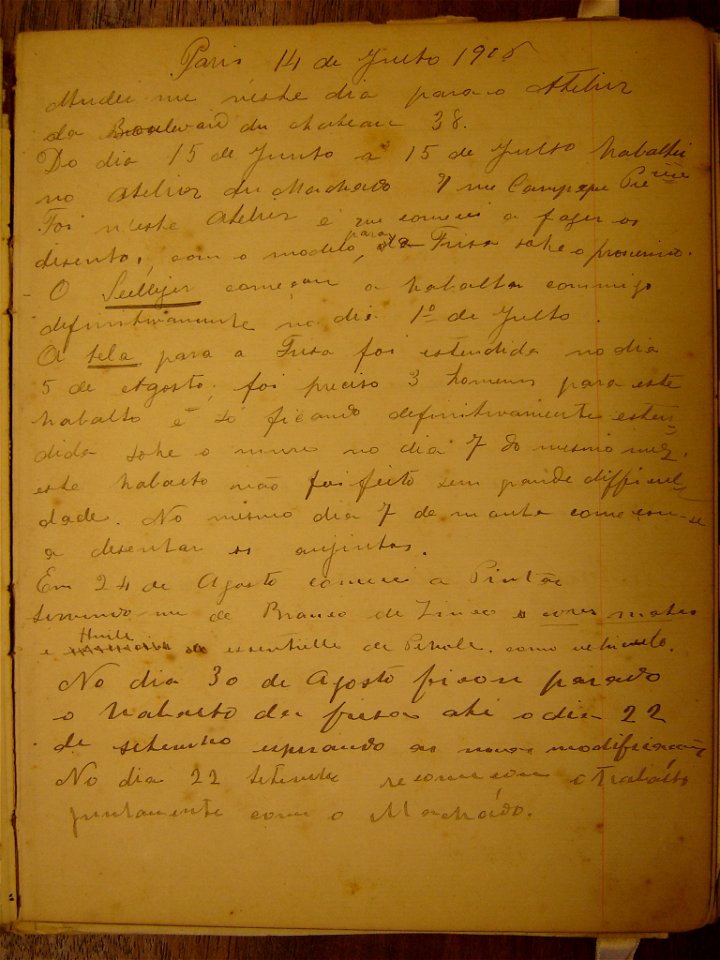 Paris 14 de Julho 190
Mudei me n'este dia para o Atelier
da Boulevard du chateau 38.
Do dia 15 de Junho a 15 de Julho trabalhei
no atelier du Machado 7 rue
Foi n'este Atelier é que comecei a fazer os
desenho, com o modelo, para a Frisa sobe o proscenio.
O Seelliger começou a trabalhar commigo
definitivamente no dia 1º de Julho
A tela para a Frisa foi estendida no dia
5 de Agosto; foi preciso 3 homens para este
trabalho e só ficando definitivamente esten-
dida sobe o muro no dia 7 do mesmo mez.
este trabalho não foi feito sem grande difficul-
dade. No mesmo dia 7 de manhã começou-se
a desenhar os anjinhos.
Em 24 de Agosto comecei a Pintar
servindo me de Branco de Zinco e cores mates
e Huile essentielle de Petrole. como vehiculo.
No dia 30 de Agosto ficou parado
o trabalho da frisa até o dia 22
de setembro esperando as novas modificações
No dia 22 setembro recomeçou o trabalho
juntamente com o Machado.